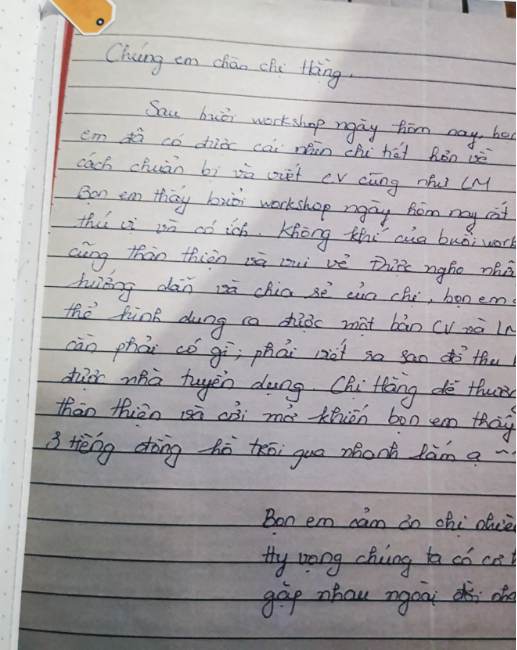 Chúng em chào chị Hằng.
Sau buổi workshop ngày hôm nay, bọn
em đã có được cái nhìn chi tiết hơn về
cách chuẩn bị và viết CV cũng như LM
Bọn em thấy buổi workshop ngày hôm nay rất
thú vị và có ích. Không khí của buổi work
cũng thân thiện và vui vẻ. Được nghe
hướng dẫn và chia sẻ của chị, bọn em
thể hình dung ra được một bản CV và LM
cần phải có gì, phải viết ra sao để thu
được nhà tuyển dụng. Chị Hằng dễ thương
thân thiện và cởi mở khiến bọn em thấy
3 tiếng đồng hồ trôi qua nhanh lắm ạ ~
Bọn em cảm ơn chị nhiều
Hy vọng chúng ta có cơ
gặp nhau ngoài đời